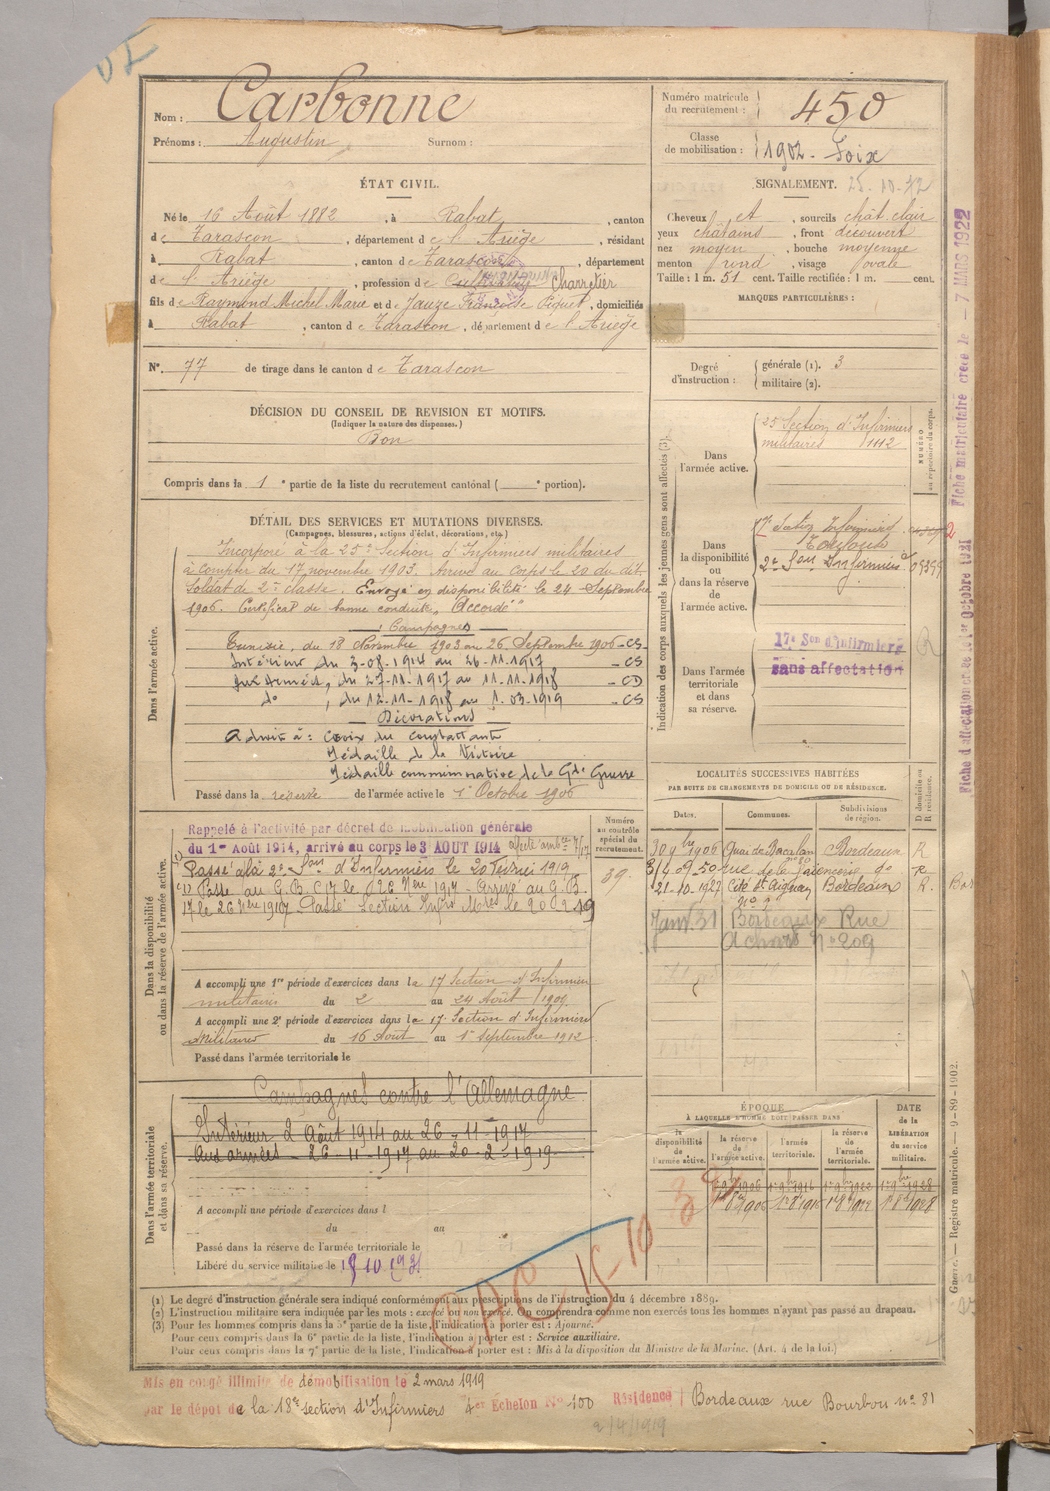 Nom : Carbonne
Prénoms : Augustin Surnom :
Numéro matricule du recrutement : 450
Classe de mobilisation : 1902 - Foix
ÉTAT CIVIL.
Né le 16 Août 1882, à Rabat, canton
de Tarascon, département de l'Ariège, résidant
à Rabat, canton de Tarascon, département
de l'Ariège, profession de Cultivateur Charretier
fils de Raymond Michel Marie et de Jauze Françoise Piquet, domiciliés
à Rabat, canton de Tarascon, département de l'Ariège
N° 77 de tirage dans le canton de Tarascon
SIGNALEMENT. 25-10-72
Cheveux et, sourcils chât. clair
yeux châtains, front découvert
nez moyen, bouche moyenne
menton rond, visage ovale
Taille : 1 m. 51 cent. Taille rectifiée : 1 m. cent.
MARQUES PARTICULIÈRES :
Degré d'instruction : générale (1). 3
militaire (2).
DÉCISION DU CONSEIL DE REVISION ET MOTIFS.
(Indiquer la nature des dispenses.)
Bon
Compris dans la 1e partie de la liste du recrutement cantonal ( e portion).
DÉTAIL DES SERVICES ET MUTATIONS DIVERSES.
(Campagnes, blessures, actions d'éclat, décorations, etc.)
Dans l'armée active.
Incorporé à la 25e Section d'Infirmiers militaires
à compter du 17 novembre 1903. Arrivé au Corps le 20 du dit.
Soldat de 2e classe. Envoyé en disponibilité le 24 Septembre
1906. Certificat de bonne conduite "Accordé"
: Campagnes
Tunisie, du 18 Novembre 1903 au 26 Septembre 1906 - CS
Intérieur du 3-08-1914 au 26-11-1917 - CS
Aux Armées, du 27-11-1917 au 11-11-1918 - CD
do, du 12-11-1918 au 1-03-1919 - CS
Décorations
Admis à : Croix du Combattant
Médaille de la Victoire
Médaille commémorative de la Gde Guerre
Passé dans la réserve de l'armée active le 1er Octobre 1906
Indication des corps auxquels les jeunes gens sont affectés (3).
NUMÉRO au répertoire du corps.
Dans l'armée active.
25 Section d'Infirmiers
militaires 1142
Dans la disponibilité ou dans la réserve de l'armée active.
17e Section Infirmiers
Toulouse
2e Son Infirmiers
Dans l'armée territoriale et dans sa réserve.
17e Son d'Infirmiers
sans affectation
Fiche d'affectation créée le 1er Octobre 1921
Fiche matriculaire créée le - 7 MARS 1922
Dans la disponibilité ou dans la réserve de l'armée active.
Rappelé à l'activité par décret de mobilisation générale
du 1er Août 1914, arrivé au corps le 3 AOUT 1914
Passé à la 2e Son d'Infirmiers le 20 Février 1919
(1) Passé au G.B.C 17 le 26 9bre 1917 - Arrivé au G.B.
17 le 26 9bre 1917 Passé Section Infirs Mres le 20-2-19
Numéro au contrôle spécial du recrutement.
39.
A accompli une 1re période d'exercices dans la 17 Section d'Infirmiers
militaires du 2 au 24 Août 1909
A accompli une 2e période d'exercices dans la 17 Section d'Infirmiers
Militaires du 16 Août au 1er Septembre 1912
Passé dans l'armée territoriale le
LOCALITÉS SUCCESSIVES HABITÉES
PAR SUITE DE CHANGEMENTS DE DOMICILE OU DE RÉSIDENCE.
Dates. Communes. Subdivisions de région. D domicile ou R résidence.
30 9bre 1906 Quai de Bacalan Bordeaux R
50 rue de la Faïencerie do R
21-10-1927 Cité St Aignan Bordeaux R.
Janv. 31 Bordeaux Rue
Achard N° 209
Dans l'armée territoriale et dans sa réserve.
Campagnes contre l'Allemagne
Intérieur 2 Août 1914 au 26-11-1917
Aux armées - 26-11-1917 au 20-2-1919
A accompli une période d'exercices dans l
du au
Passé dans la réserve de l'armée territoriale le
Libéré du service militaire le
ÉPOQUE
À LAQUELLE L'HOMME DOIT PASSER DANS
la disponibilité de l'armée active. la réserve de l'armée active. l'armée territoriale. la réserve de l'armée territoriale. DATE de la LIBÉRATION du service militaire.
1er 9bre 1906 1er 9bre 1916 1er 9bre 1922 1er 9bre 1928
1er 8bre 1906 1er 8bre 1916 1er 8bre 1922 1er 8bre 1928
15-10
(1) Le degré d'instruction générale sera indiqué conformément aux prescriptions de l'instruction du 4 décembre 1889.
(2) L'instruction militaire sera indiquée par les mots : exercé ou non exercé. On comprendra comme non exercés tous les hommes n'ayant pas passé au drapeau.
(3) Pour les hommes compris dans la 5e partie de la liste, l'indication à porter est : Ajourné.
Pour ceux compris dans la 6e partie de la liste, l'indication à porter est : Service auxiliaire.
Pour ceux compris dans la 7e partie de la liste, l'indication à porter est : Mis à la disposition du Ministre de la Marine. (Art. 4 de la loi.)
Registre matricule. — 9-89-1902.
Mis en congé illimité de démobilisation le 2 mars 1919
par le dépôt de la 18e section d'Infirmiers 4er Échelon No 100 Résidence Bordeaux rue Bourbon n° 81
2/4/1919